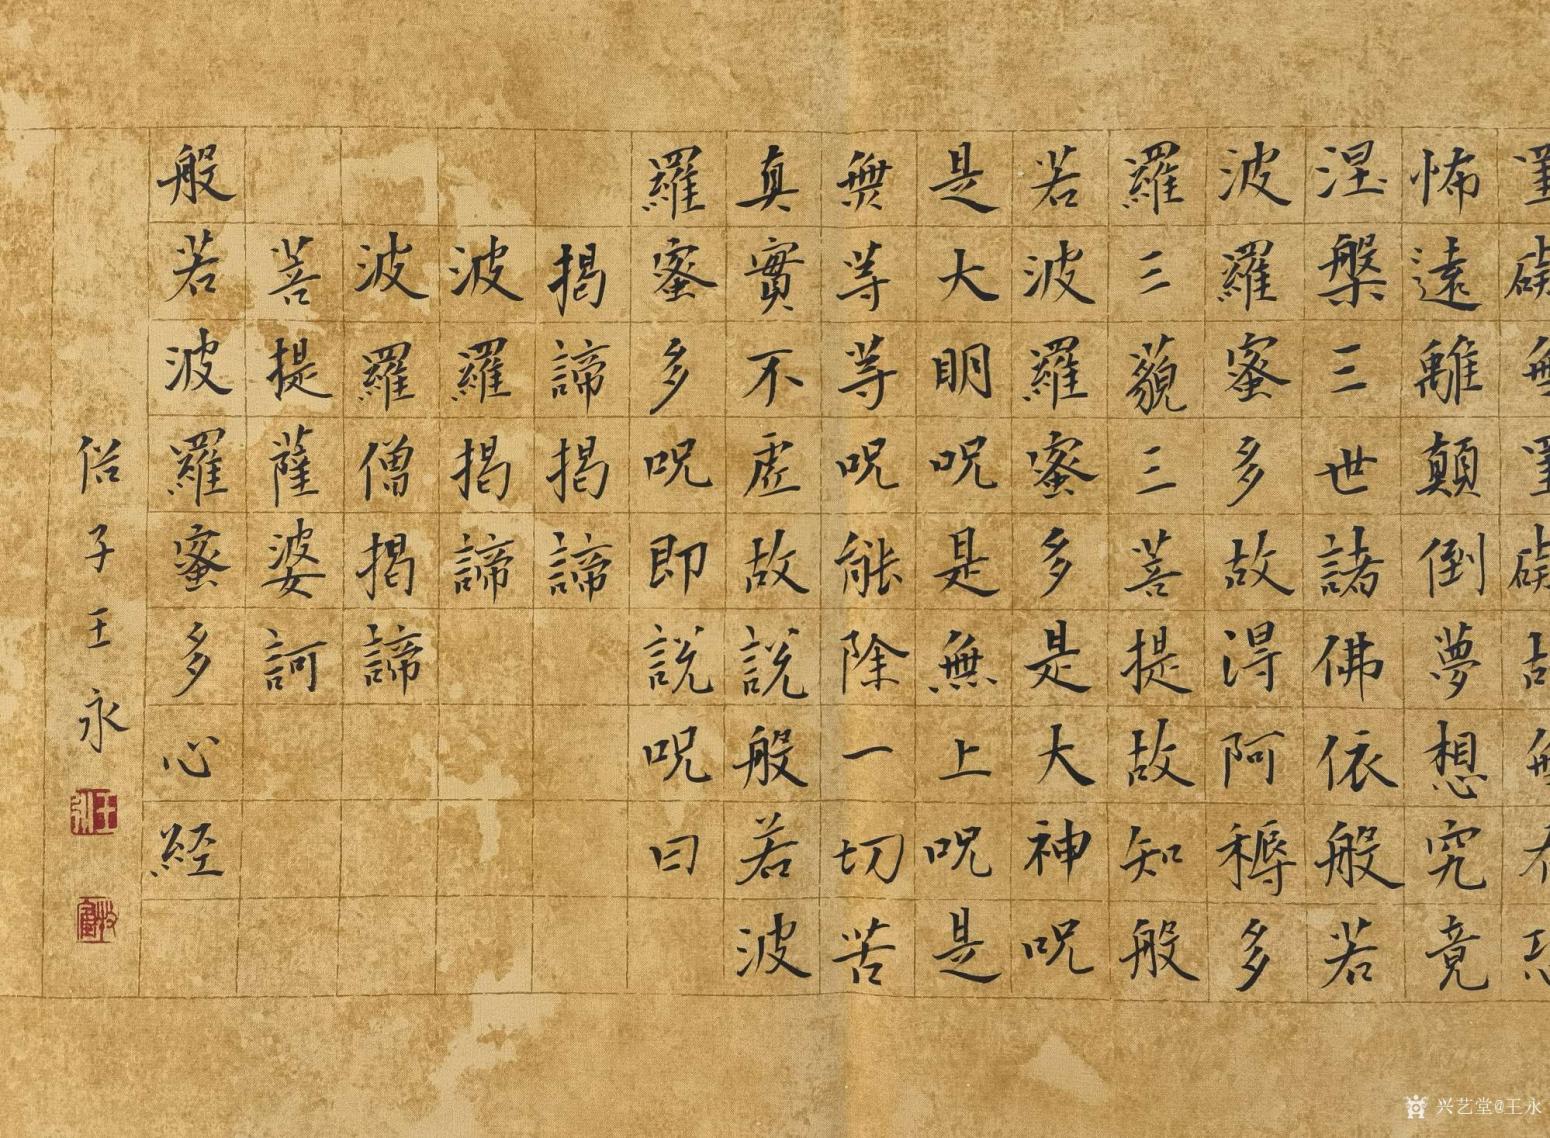 罣礙無罣礙故無有恐
怖遠離顛倒夢想究竟
涅槃三世諸佛依般若
波羅蜜多故得阿耨多
羅三藐三菩提故知般
若波羅蜜多是大神呪
是大明呪是無上呪是
無等等呪能除一切苦
真實不虛故說般若波
羅蜜多呪即說呪曰
揭諦揭諦
波羅揭諦
波羅僧揭諦
菩提薩婆訶
般若波羅蜜多心経
俗子王永
兴艺堂@王永